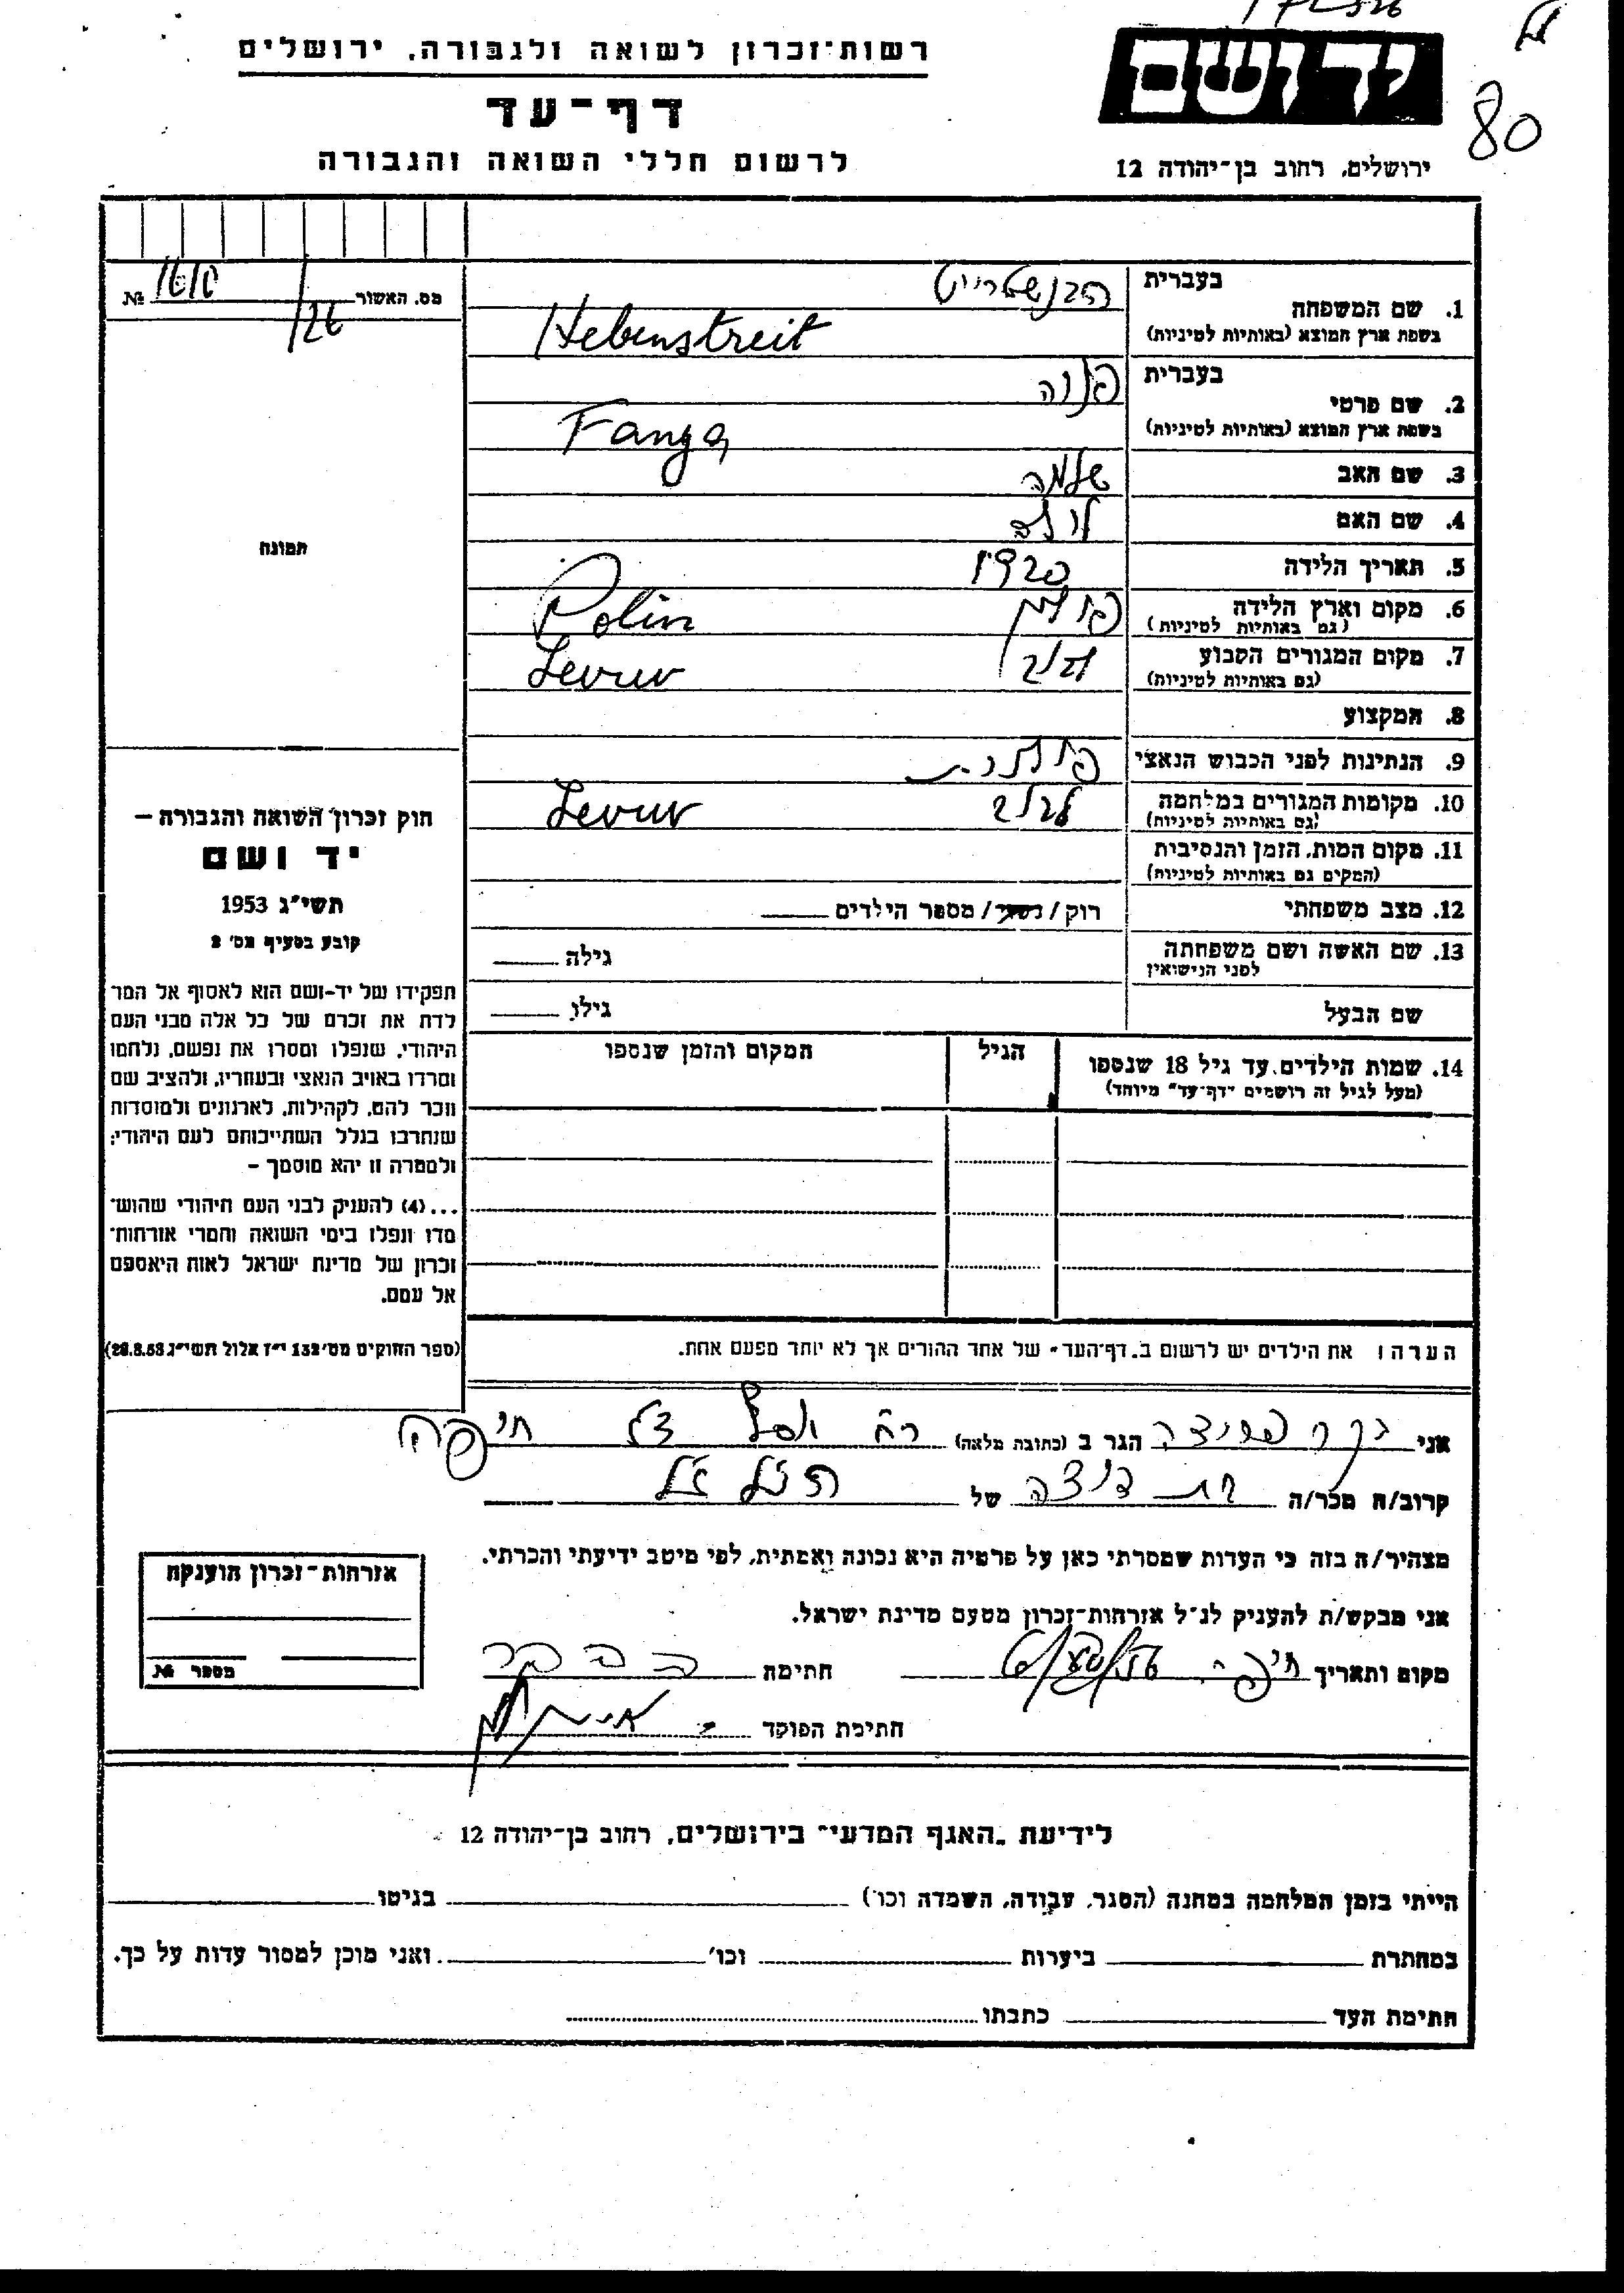 רשות־זכרון לשואה ולגבורה, ירושלים
יד ושם
80
דף־עד
לרשום חללי השואה והגבורה
ירושלים, רחוב בן־יהודה 12
מס. האשור №
1. שם המשפחה
בעברית הבנשטרייט
בשפת ארץ המוצא (באותיות לטיניות) Hebenstreit
2. שם פרטי
בעברית פניה
בשפת ארץ המוצא (באותיות לטיניות) Fanya
3. שם האב שלמה
4. שם האם
5. תאריך הלידה 1920
6. מקום וארץ הלידה פולין Polin
(גם באותיות לטיניות)
7. מקום המגורים הקבוע Levuv
(גם באותיות לטיניות)
8. המקצוע
9. הנתינות לפני הכבוש הנאצי פולנית
10. מקומות המגורים במלחמה Levuv
(גם באותיות לטיניות)
11. מקום המות, הזמן והנסיבות
(המקום גם באותיות לטיניות)
12. מצב משפחתי רוק / נשוי / מספר הילדים
13. שם האשה ושם משפחתה גילה
לפני הנישואין
שם הבעל גילו
14. שמות הילדים עד גיל 18 שנספו הגיל המקום והזמן שנספו
(מעל לגיל זה רושמים "דף־עד" מיוחד)
תמונה
חוק זכרון השואה והגבורה –
יד ושם
תשי"ג 1953
קובע בסעיף מס' 2
תפקידו של יד-ושם הוא לאסוף אל המו
לדת את זכרם של כל אלה מבני העם
היהודי, שנפלו ומסרו את נפשם, נלחמו
ומרדו באויב הנאצי ובעוזריו, ולהציב שם
וזכר להם, לקהילות, לארגונים ולמוסדות
שנחרבו בגלל השתייכותם לעם היהודי;
ולמטרה זו יהא מוסמך –
...(4) להעניק לבני העם היהודי שהוש־
מדו ונפלו בימי השואה והמרי אזרחות־
זכרון של מדינת ישראל לאות היאספם
אל עמם.
(ספר החוקים מס' 132 י"ז אלול תשי"ג 28.8.53)
הערה: את הילדים יש לרשום ב"דף־העד" של אחד ההורים אך לא יותר מפעם אחת.
אני הגר ב (כתובת מלאה) חיפה
קרוב/ה מכר/ה בת דודה של הנ"ל
מצהיר/ה בזה כי העדות שמסרתי כאן על פרטיה היא נכונה ואמתית, לפי מיטב ידיעתי והכרתי.
אני מבקש/ת להעניק לנ"ל אזרחות־זכרון מטעם מדינת ישראל.
מקום ותאריך חיפה חתימה
חתימת הפוקד
אזרחות־זכרון הוענקה
מספר №
לידיעת "האגף המדעי" בירושלים, רחוב בן־יהודה 12
הייתי בזמן המלחמה במחנה (הסגר, עבודה, השמדה וכו') בגיטו
במחתרת ביערות וכו' ואני מוכן למסור עדות על כך.
חתימת העד כתבתו